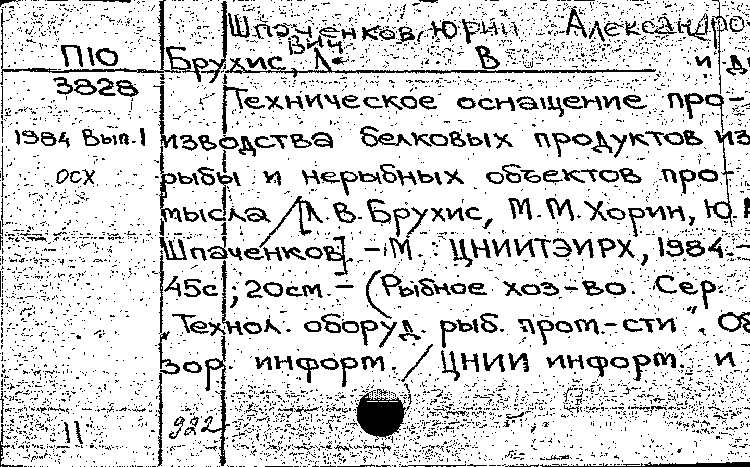 Шпаченков, Юрий Александро
вич
П10 Брухис, Л. В и др
3828
Техническое оснащение про-
1984 Вып.1 изводства белковых продуктов из
осх рыбы и нерыбных объектов про-
мысла / [Л.В. Брухис, М.М. Хорин, Ю.
Шпаченков]. – М. : ЦНИИТЭИРХ, 1984.–
45с.; 20см. – (Рыбное хоз-во. Сер.
„Технол. оборуд. рыб. пром-сти“. Об
зор. информ. / ЦНИИ информ. и
11 922